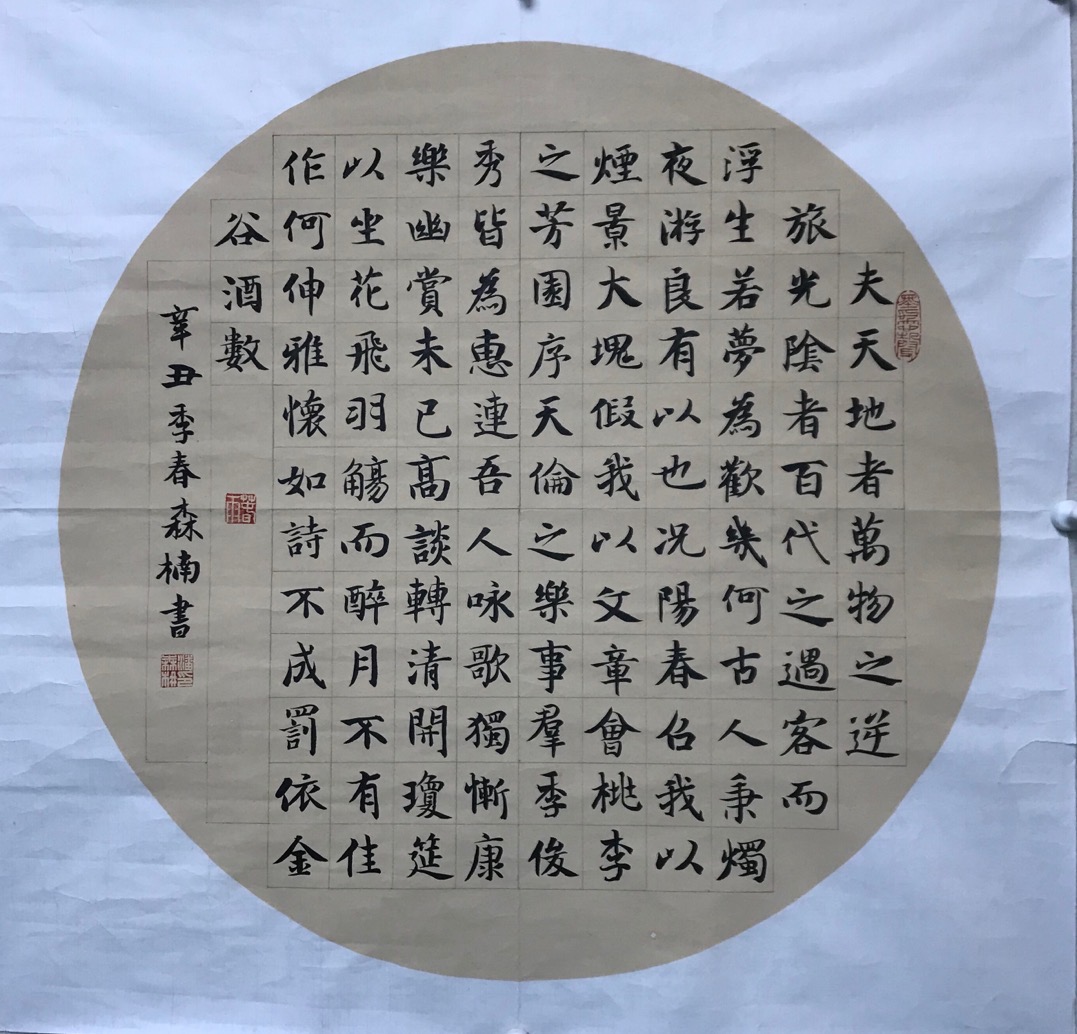 夫天地者萬物之逆
旅光陰者百代之過客而
浮生若夢為歡幾何古人秉燭
夜游良有以也况陽春召我以
煙景大塊假我以文章會桃李
之芳園序天倫之樂事羣季俊
秀皆為惠連吾人咏歌獨慚康
樂幽賞未已髙談轉清開瓊筵
以坐花飛羽觴而醉月不有佳
作何伸雅懷如詩不成罰依金
谷酒數
辛丑季春森楠書